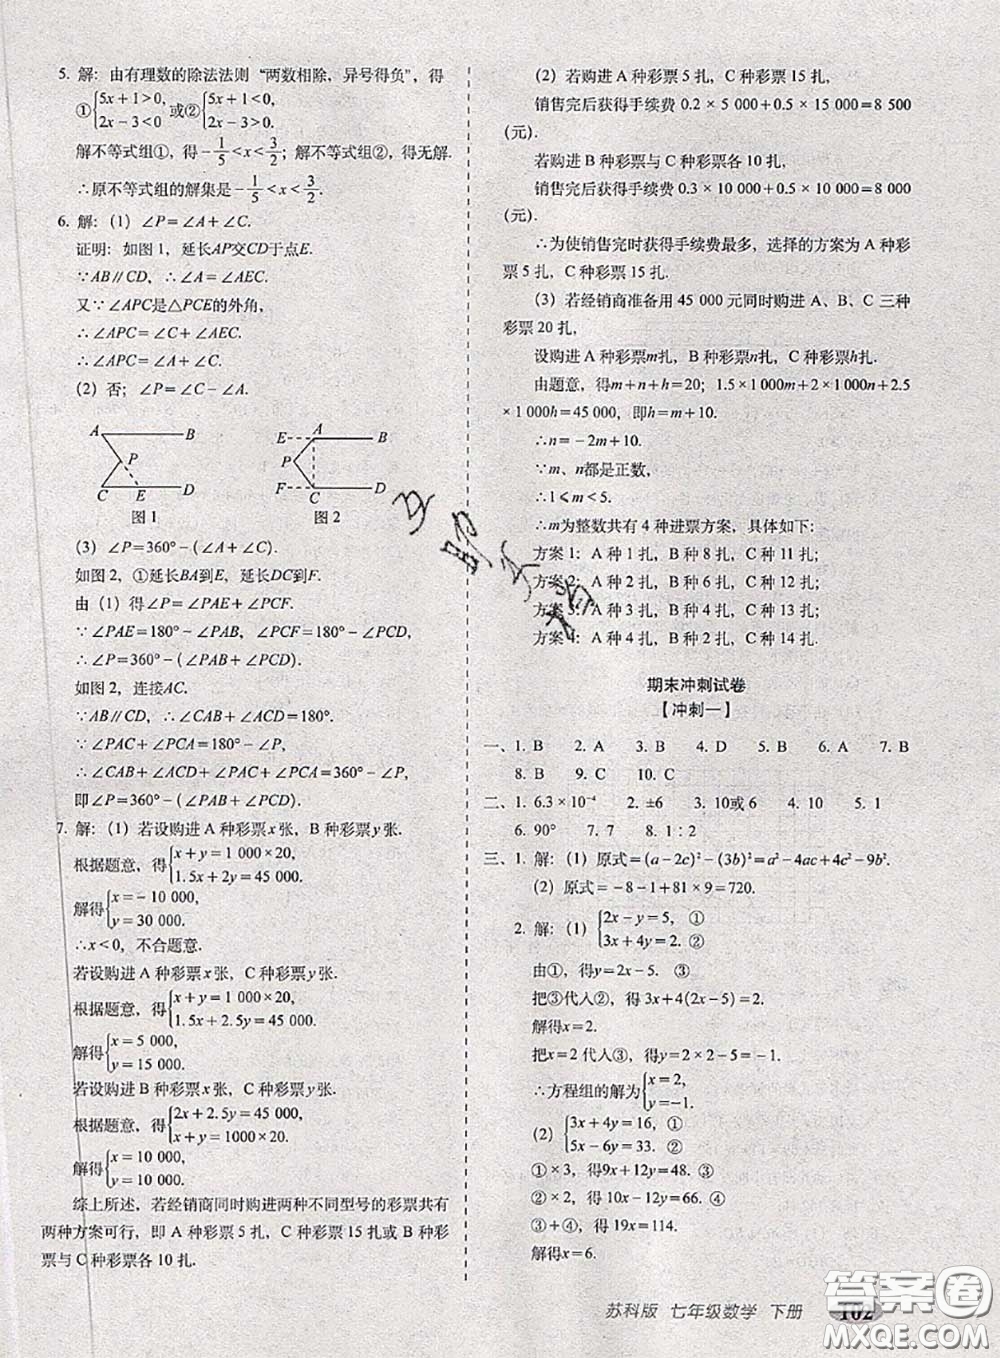 5. 解:由有理数的除法法则“两数相除,异号得负”,得
①{5x+1>0, 2x-3<0 或②{5x+1<0, 2x-3>0.
解不等式组①,得-1/5<x<3/2;解不等式组②,得无解.
∴原不等式组的解集是-1/5<x<3/2.
6. 解:(1)∠P=∠A+∠C.
证明:如图1,延长AP交CD于点E.
∵AB∥CD,∴∠A=∠AEC.
又∵∠APC是△PCE的外角,
∴∠APC=∠C+∠AEC.
∴∠APC=∠A+∠C.
(2)否;∠P=∠C-∠A.
A B P C E D
图1
E A B P F C D
图2
(3)∠P=360°-(∠A+∠C).
如图2,①延长BA到E,延长DC到F.
由(1)得∠P=∠PAE+∠PCF.
∵∠PAE=180°-∠PAB,∠PCF=180°-∠PCD,
∴∠P=360°-(∠PAB+∠PCD).
如图2,连接AC.
∵AB∥CD,∴∠CAB+∠ACD=180°.
∵∠PAC+∠PCA=180°-∠P,
∴∠CAB+∠ACD+∠PAC+∠PCA=360°-∠P,
即∠P=360°-(∠PAB+∠PCD).
7. 解:(1)若设购进A种彩票x张,B种彩票y张.
根据题意,得{x+y=1 000×20, 1.5x+2y=45 000.
解得{x=-10 000, y=30 000.
∴x<0,不合题意.
若设购进A种彩票x张,C种彩票y张.
根据题意,得{x+y=1 000×20, 1.5x+2.5y=45 000.
解得{x=5 000, y=15 000.
若设购进B种彩票x张,C种彩票y张.
根据题意,得{2x+2.5y=45 000, x+y=1000×20.
解得{x=10 000, y=10 000.
综上所述,若经销商同时购进两种不同型号的彩票共有
两种方案可行,即A种彩票5扎,C种彩票15扎或B种彩
票与C种彩票各10扎.
(2)若购进A种彩票5扎,C种彩票15扎,
销售完后获得手续费0.2×5 000+0.5×15 000=8 500
(元).
若购进B种彩票与C种彩票各10扎,
销售完后获得手续费0.3×10 000+0.5×10 000=8 000
(元).
∴为使销售完时获得手续费最多,选择的方案为A种彩
票5扎,C种彩票15扎.
(3)若经销商准备用45 000元同时购进A、B、C三种
彩票20扎,
设购进A种彩票m扎,B种彩票n扎,C种彩票h扎.
由题意,得m+n+h=20;1.5×1 000m+2×1 000n+2.5
×1 000h=45 000,即h=m+10.
∴n=-2m+10.
∵m、n都是正数,
∴1⩽m<5.
∴m为整数共有4种进票方案,具体如下:
方案1:A种1扎,B种8扎,C种11扎;
方案2:A种2扎,B种6扎,C种12扎;
方案3:A种3扎,B种4扎,C种13扎;
方案4:A种4扎,B种2扎,C种14扎.
期末冲刺试卷
【冲刺一】
一、1. B 2. A 3. B 4. D 5. B 6. A 7. B
8. B 9. C 10. C
二、1. 6.3×10⁻⁴ 2. ±6 3. 10或6 5. 1
6. 90° 7. 7 8. 1∶2
三、1. 解:(1)原式=(a-2c)²-(3b)²=a²-4ac+4c²-9b².
(2)原式=-8-1+81×9=720.
2. 解:(1){2x-y=5, ① 3x+4y=2. ②
由①,得y=2x-5. ③
把③代入②,得3x+4(2x-5)=2.
解得x=2.
把x=2代入③,得y=2×2-5=-1.
∴方程组的解为{x=2, y=-1.
(2){3x+4y=16, ① 5x-6y=33. ②
①×3,得9x+12y=48. ③
②×2,得10x-12y=66. ④
③+④,得19x=114.
解得x=6.
苏科版 七年级数学 下册 102
答案圈
MXQE.COM